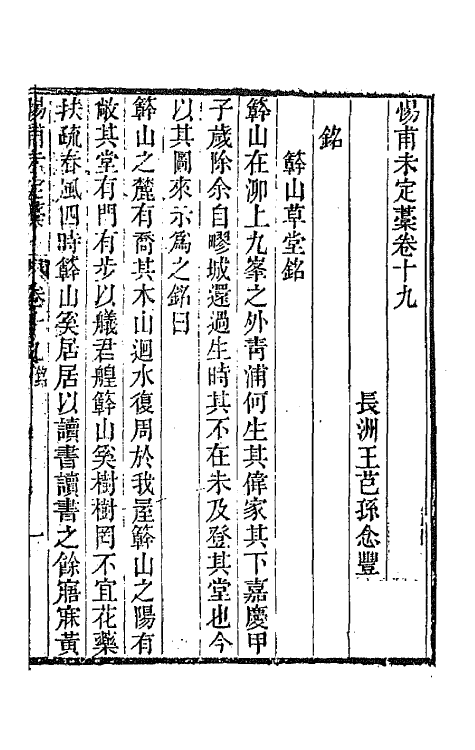 惕甫未定藁卷十九
長洲王芑孫念豐
銘
簳山草堂銘
簳山在泖上九峯之外青浦何生其偉家其下嘉慶甲
子歲除余自疁城還過生時其不在未及登其堂也今
以其圖來示爲之銘曰
簳山之麓有喬其木山迴水復周於我屋簳山之陽有
敞其堂有門有步以艤君艎簳山奚樹樹罔不宜花藥
扶疏春風四時簳山奚居居以讀書讀書之餘寤寐黃
惕甫未定藁 卷十九 銘 一